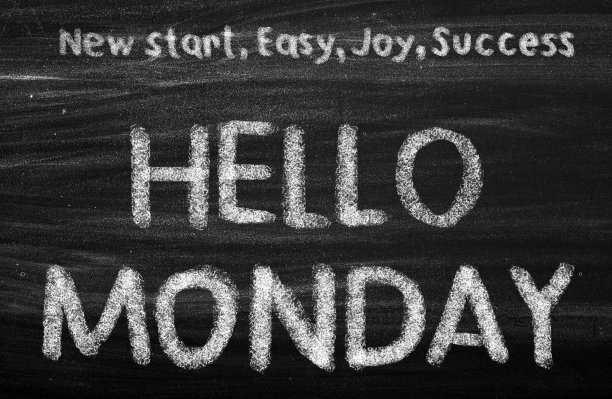 New start, Easy, Joy, Success
HELLO
MONDAY